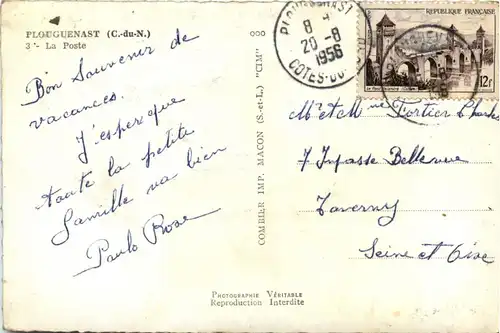 PLOUGUENAST (C.-du-N.)
3 - La Poste
Bon Souvenir de
vacances.
J'espère que
toute la petite
famille va bien
Paulo Rose
COMBIER IMP. MACON (S.-et-L.) "CIM"
PLOUGUENAST
8 H
20-8
1956
COTES-DU-NORD
REPUBLIQUE FRANÇAISE
12F
Mr et Me Fortier Charles
7 Impasse Bellevue
Taverny
Seine et Oise
PHOTOGRAPHIE VÉRITABLE
Reproduction Interdite